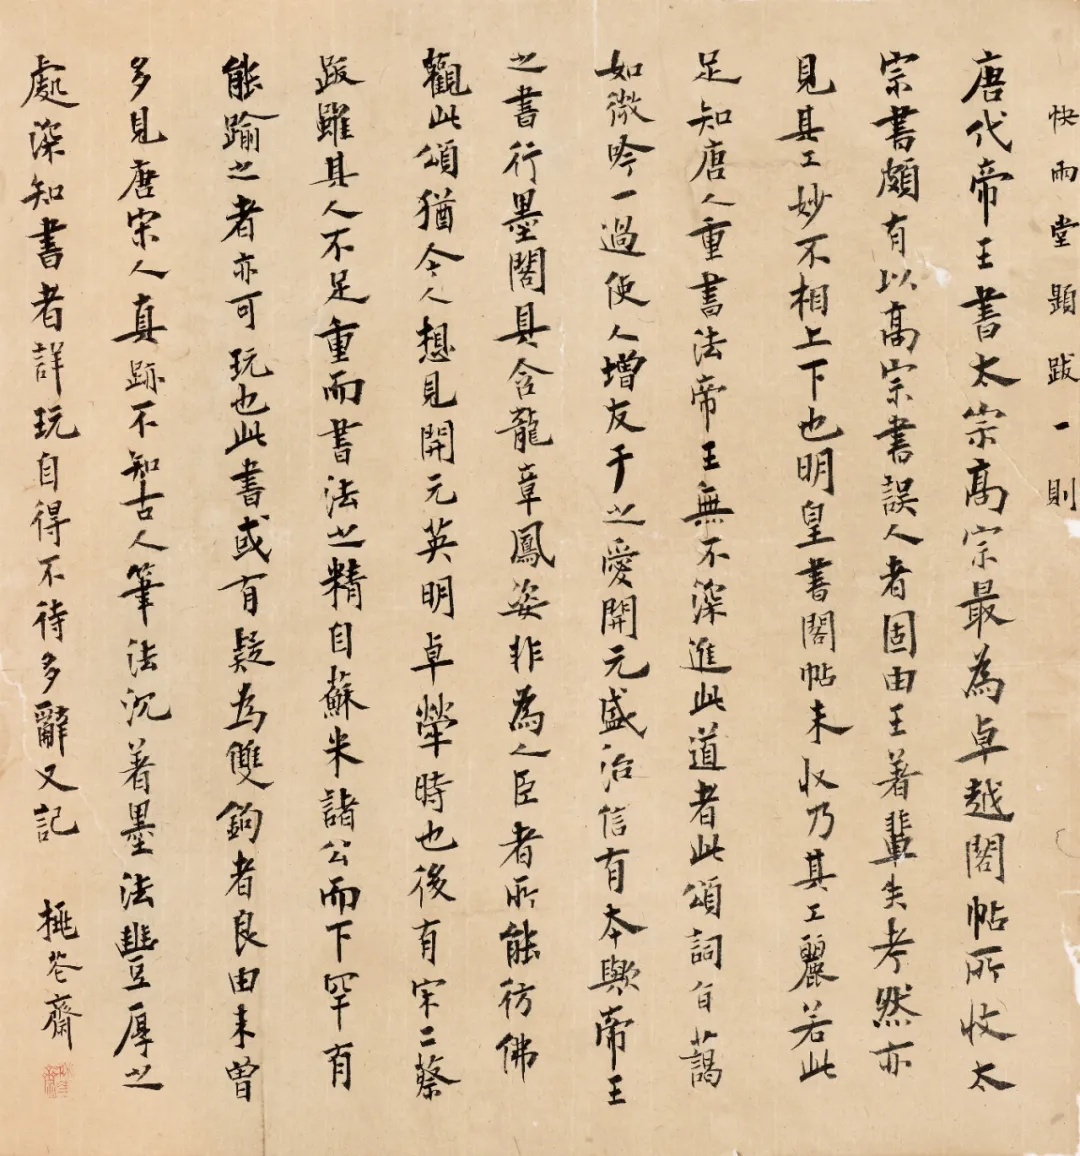 快雨堂題跋一則
唐代帝王書太宗高宗最為卓越閣帖所收太
宗書頗有以高宗書誤人者固由王著輩失考然亦
見其工妙不相上下也明皇書閣帖未收乃其工麗若此
足知唐人重書法帝王無不深進此道者此頌詞旨藹
如微吟一過使人增友于之愛開元盛治信有本歟帝王
之書行墨閣具含龍章鳳姿非為人臣者所能彷佛
觀此頌猶令人想見開元英明卓犖時也後有宋二蔡
跋雖其人不足重而書法之精自蘇米諸公而下罕有
能踰之者亦可玩也此書或有疑為雙鉤者良由未曾
多見唐宋人真跡不知古人筆法沉着墨法豐厚之
處深知書者詳玩自得不待多辭又記 桃花齋